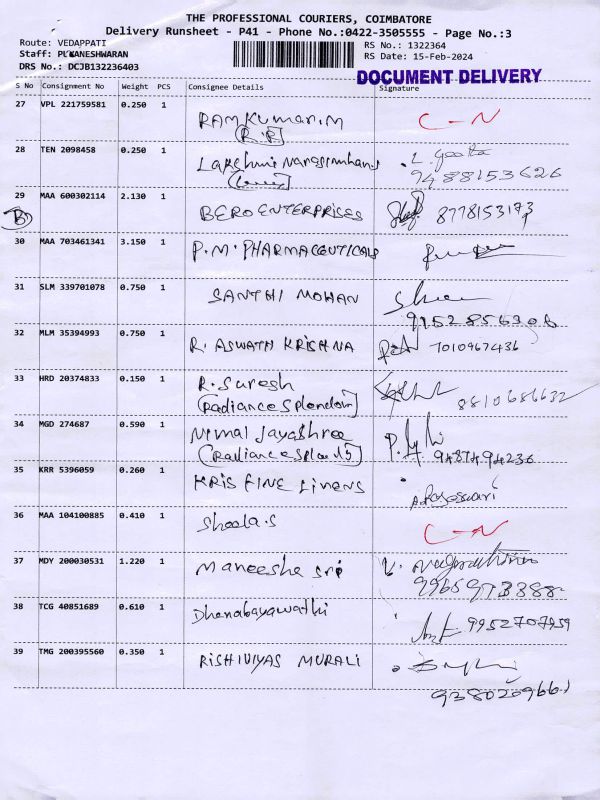 THE PROFESSIONAL COURIERS, COIMBATORE
Delivery Runsheet - P41 - Phone No.:0422-3505555 - Page No.:3
Route: VEDAPPATI
RS No.: 1322364
Staff:
RS Date: 15-Feb-2024
DRS No.: DCJB132236403
DOCUMENT DELIVERY
S No Consignment No Weight PCS Consignee Details Signature
27 VPL 221759581 0.250 1 RAMKUMAR.M C-N
(R.R)
28 TEN 2098458 0.250 1 Lakshmi Narasimhan.s L. Geetha
9488153626
29 MAA 600302114 2.130 1 BERO ENTERPRISES 8778153173
30 MAA 703461341 3.150 1 P.M. PHARMACEUTICALS
31 SLM 339701078 0.750 1 SANTHI MOHAN
32 MLM 35394993 0.750 1 R. ASWATH KRISHNA 7010967436
33 HRD 20374833 0.150 1 R. Suresh 8810686632
(Radiance Splendour)
34 MGD 274687 0.590 1 Nirmal Jayashree
9487494236
35 KRR 5396059 0.260 1 KRIS FINE Linens A. Rajeswari
36 MAA 104100885 0.410 1 Sheela.s C-N
37 MDY 200030531 1.220 1 Maneesha sri
9965973888
38 TCG 40851689 0.610 1 Dhanabayawathi 9952707959
39 TMG 200395560 0.350 1 RISHIVIYAS MURALI
9380209661